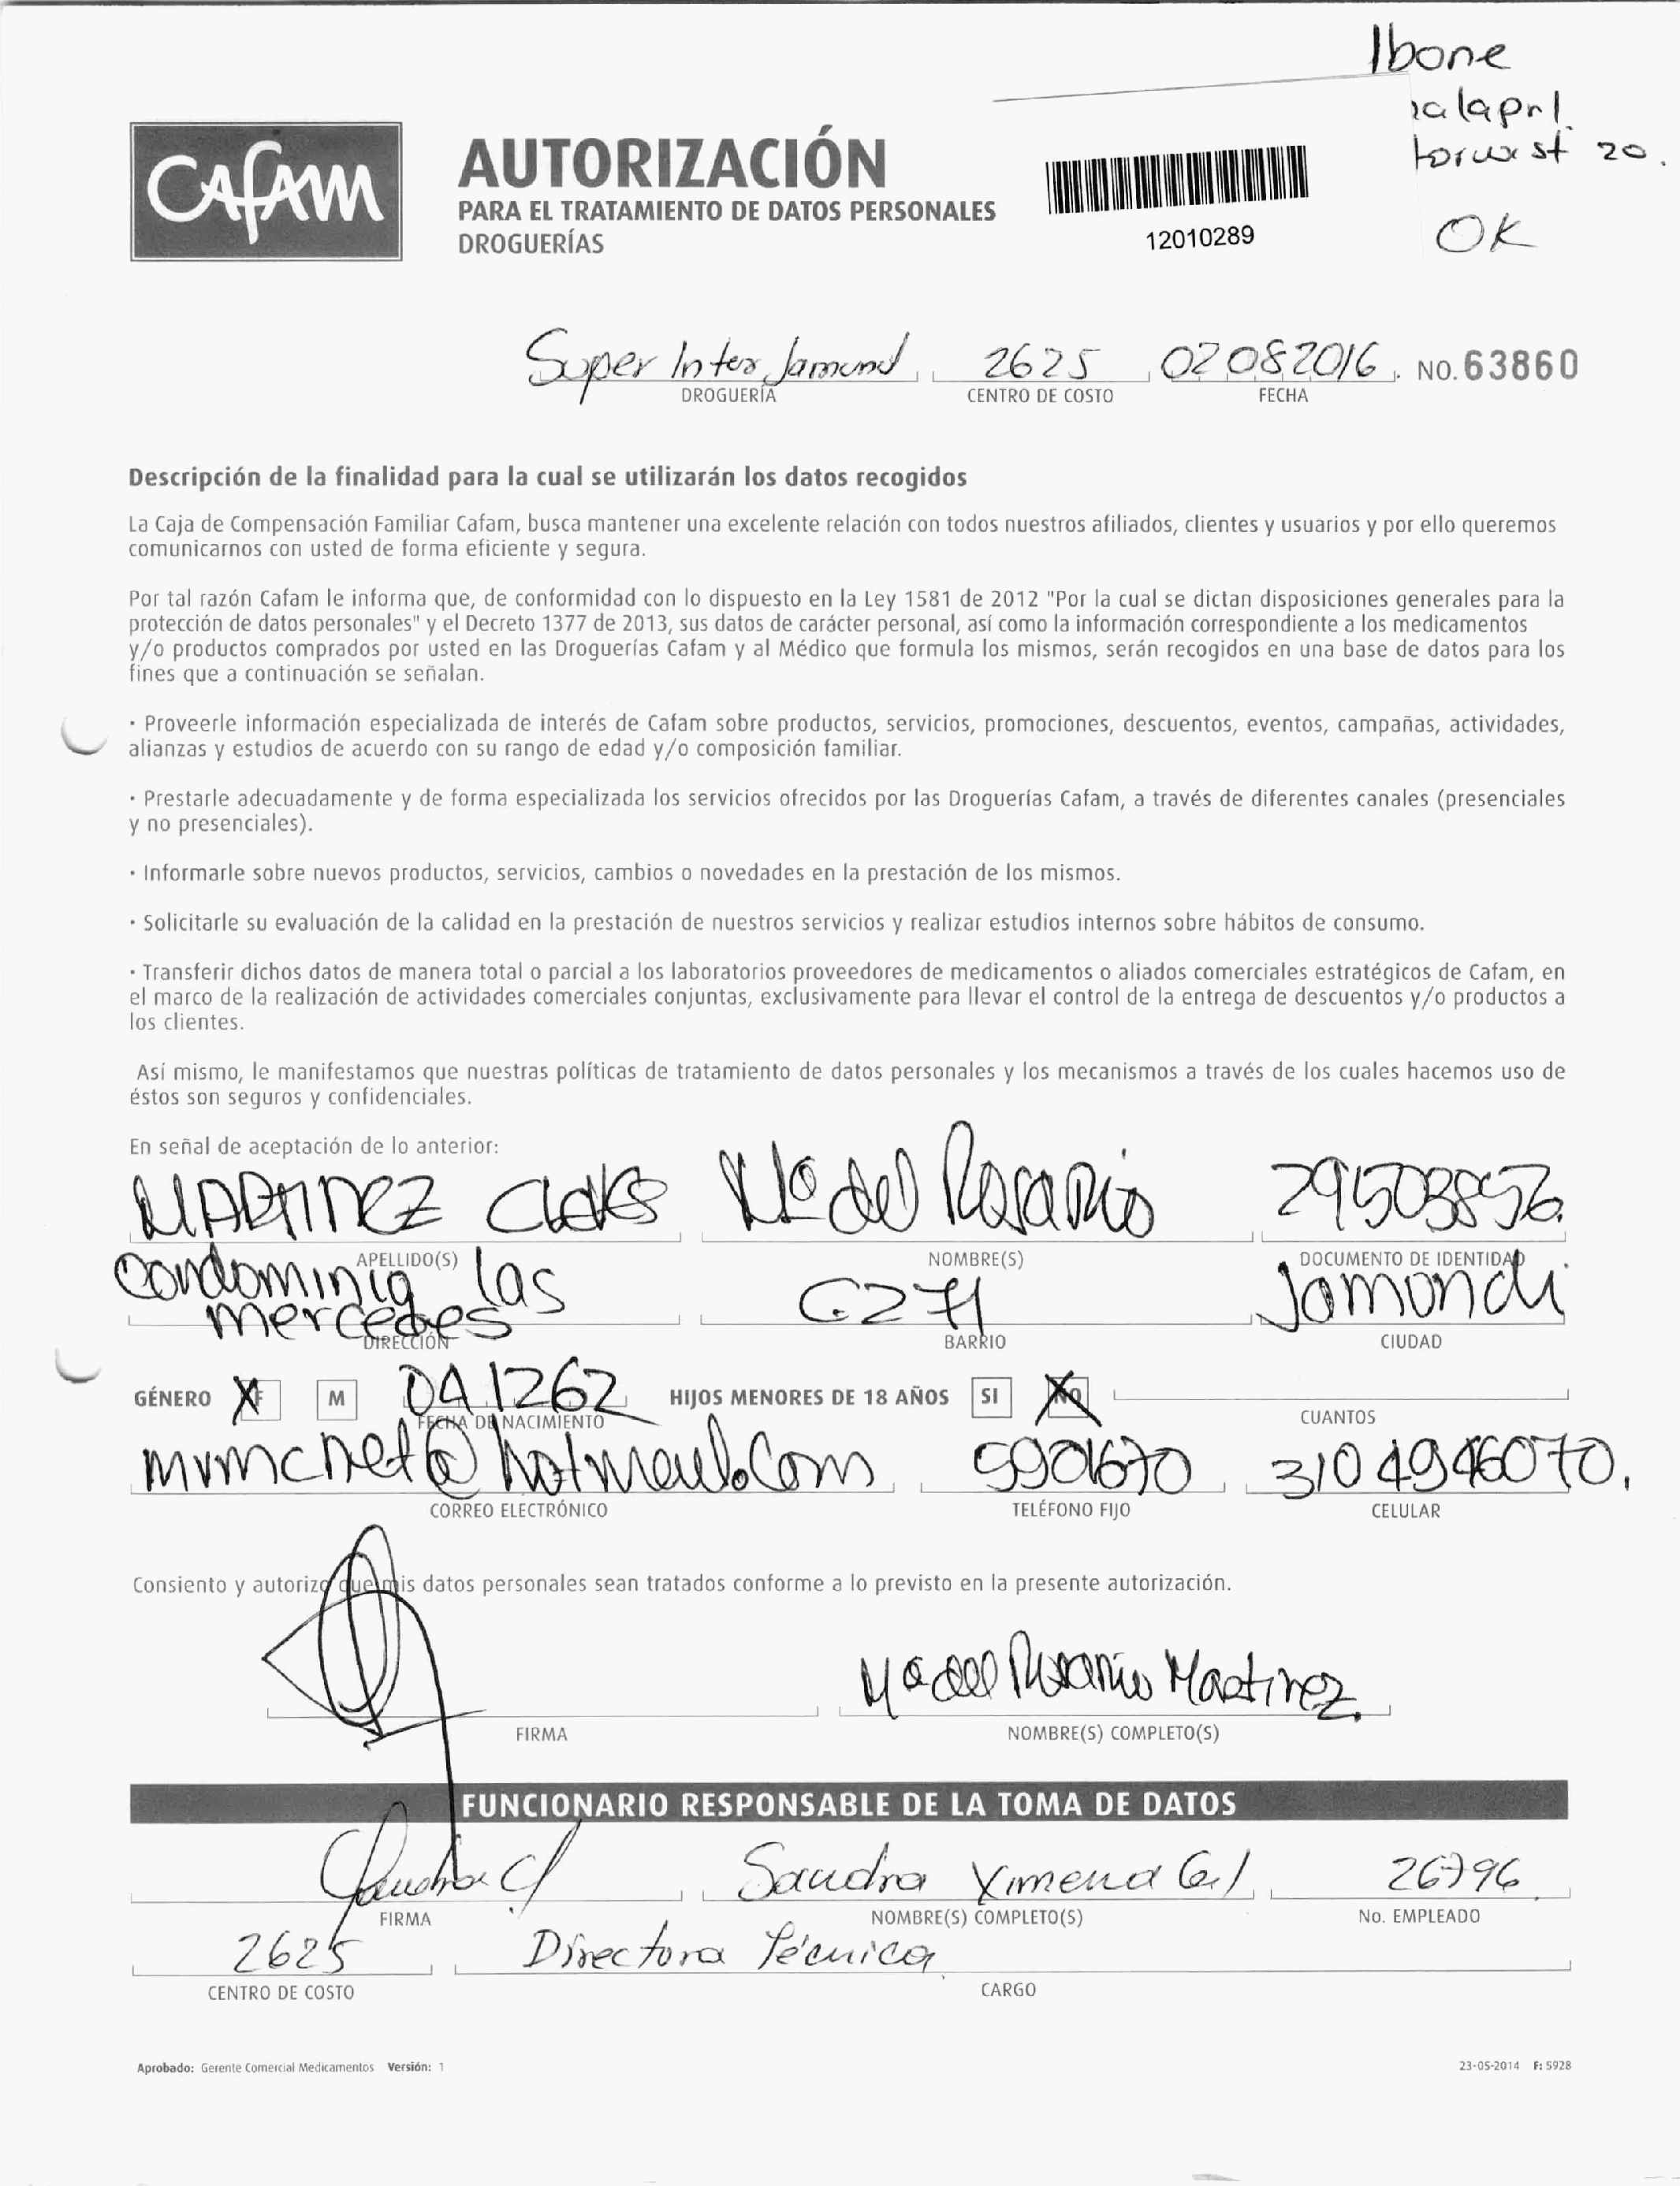 Ibone
st 20.
OK
CAFAM
AUTORIZACIÓN
PARA EL TRATAMIENTO DE DATOS PERSONALES
DROGUERÍAS
12010289
Super Inter Jamundi 2625 02 08 2016 NO. 63860
DROGUERÍA CENTRO DE COSTO FECHA
Descripción de la finalidad para la cual se utilizarán los datos recogidos
La Caja de Compensación Familiar Cafam, busca mantener una excelente relación con todos nuestros afiliados, clientes y usuarios y por ello queremos
comunicarnos con usted de forma eficiente y segura.
Por tal razón Cafam le informa que, de conformidad con lo dispuesto en la Ley 1581 de 2012 "Por la cual se dictan disposiciones generales para la
protección de datos personales" y el Decreto 1377 de 2013, sus datos de carácter personal, así como la información correspondiente a los medicamentos
y/o productos comprados por usted en las Droguerías Cafam y al Médico que formula los mismos, serán recogidos en una base de datos para los
fines que a continuación se señalan.
· Proveerle información especializada de interés de Cafam sobre productos, servicios, promociones, descuentos, eventos, campañas, actividades,
alianzas y estudios de acuerdo con su rango de edad y/o composición familiar.
· Prestarle adecuadamente y de forma especializada los servicios ofrecidos por las Droguerías Cafam, a través de diferentes canales (presenciales
y no presenciales).
· Informarle sobre nuevos productos, servicios, cambios o novedades en la prestación de los mismos.
· Solicitarle su evaluación de la calidad en la prestación de nuestros servicios y realizar estudios internos sobre hábitos de consumo.
· Transferir dichos datos de manera total o parcial a los laboratorios proveedores de medicamentos o aliados comerciales estratégicos de Cafam, en
el marco de la realización de actividades comerciales conjuntas, exclusivamente para llevar el control de la entrega de descuentos y/o productos a
los clientes.
Así mismo, le manifestamos que nuestras políticas de tratamiento de datos personales y los mecanismos a través de los cuales hacemos uso de
éstos son seguros y confidenciales.
En señal de aceptación de lo anterior:
MARTINEZ Ma del Rosario 29503856
APELLIDO(S) NOMBRE(S) DOCUMENTO DE IDENTIDAD
Condominio las
mercedes C271 Jamundi
DIRECCIÓN BARRIO CIUDAD
GÉNERO X F M 041262 HIJOS MENORES DE 18 AÑOS SI X NO
FECHA DE NACIMIENTO CUANTOS
mvmcnet@hotmail.com 5901670 3104946070
CORREO ELECTRÓNICO TELÉFONO FIJO CELULAR
Consiento y autorizo que mis datos personales sean tratados conforme a lo previsto en la presente autorización.
Ma del Rosario Martinez
FIRMA NOMBRE(S) COMPLETO(S)
FUNCIONARIO RESPONSABLE DE LA TOMA DE DATOS
Sandra Ximena Gil 26796
FIRMA NOMBRE(S) COMPLETO(S) No. EMPLEADO
2625 Directora Técnica
CENTRO DE COSTO CARGO
Aprobado: Gerente Comercial Medicamentos Versión: 1 23-05-2014 F: 5928